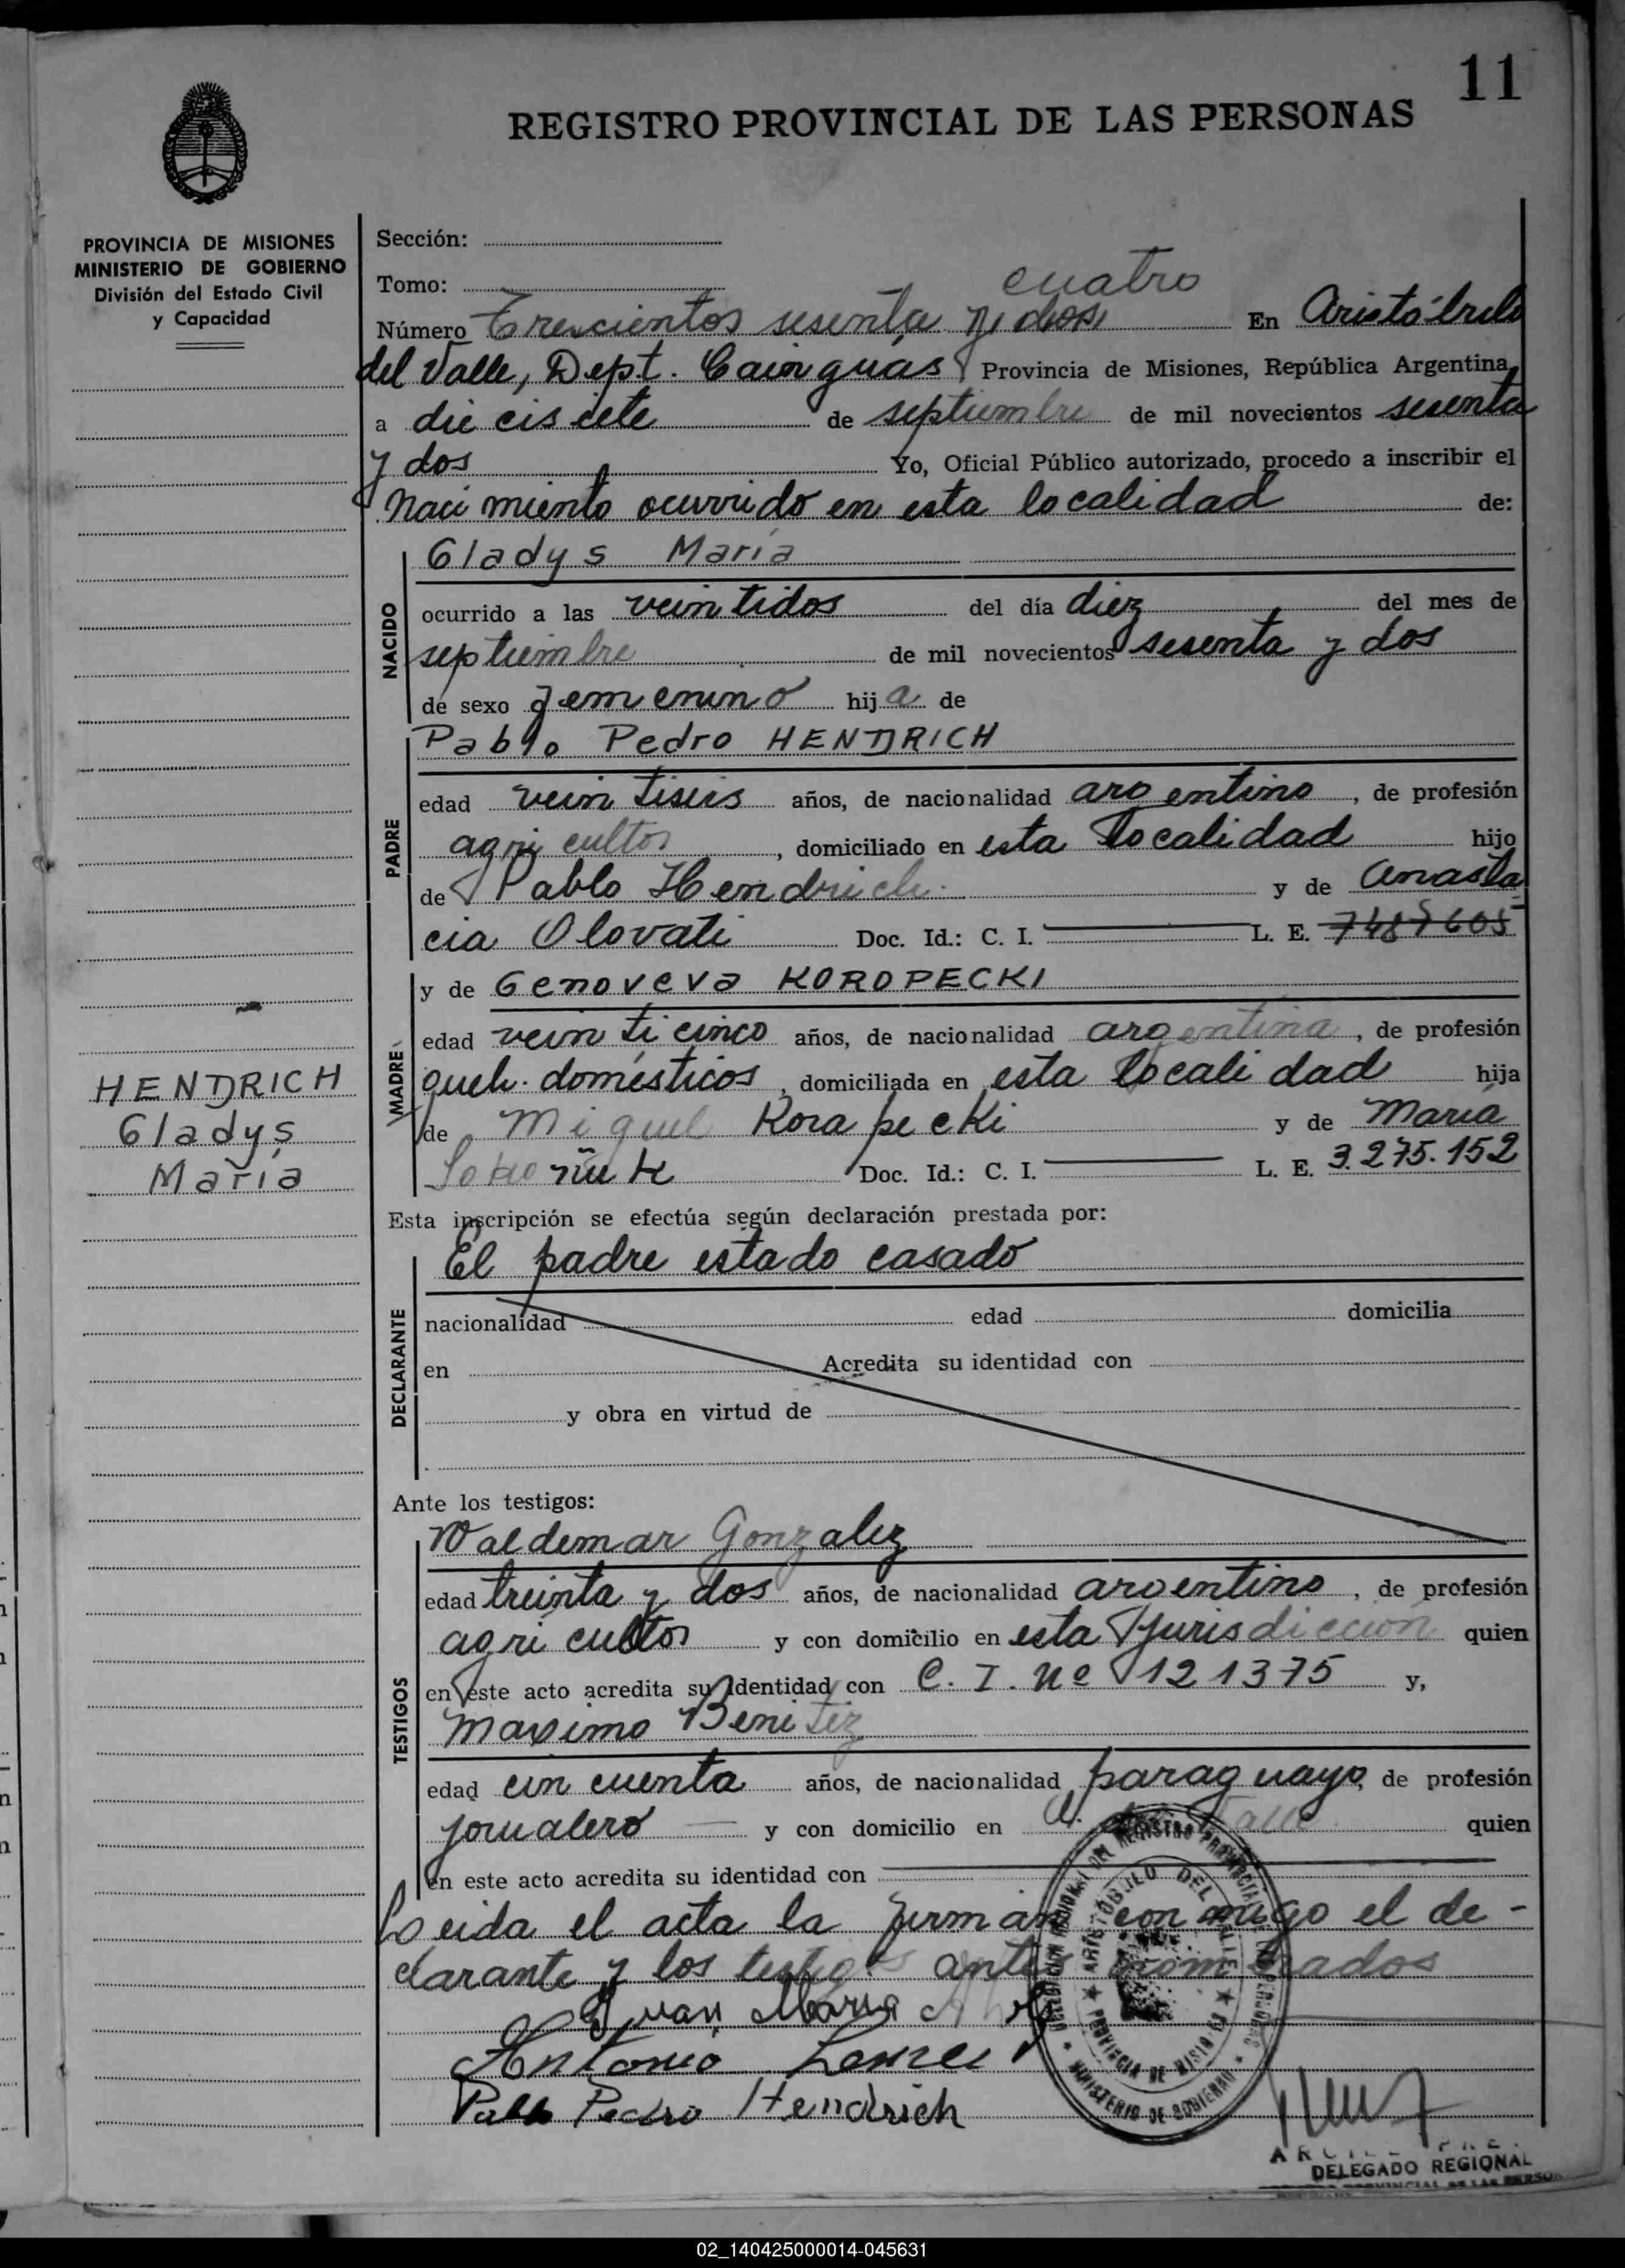 11
REGISTRO PROVINCIAL DE LAS PERSONAS
PROVINCIA DE MISIONES
MINISTERIO DE GOBIERNO
División del Estado Civil
y Capacidad
Sección:
Tomo:
cuatro
Número Trescientos sesenta y dos En Aristóbulo
del Valle, Dept. Cainguás Provincia de Misiones, República Argentina,
a diecisiete de septiembre de mil novecientos sesenta
y dos Yo, Oficial Público autorizado, procedo a inscribir el
nacimiento ocurrido en esta localidad de:
NACIDO
Gladys María
ocurrido a las veintidos del día diez del mes de
septiembre de mil novecientos sesenta y dos
de sexo femenino hija de
PADRE
Pablo Pedro HENDRICH
edad veintiseis años, de nacionalidad argentino, de profesión
agricultor, domiciliado en esta localidad hijo
de Pablo Hendrich y de Anasta
cia Olovati Doc. Id.: C. I. L. E.
MADRE
y de Genoveva KOROPECKI
edad veinticinco años, de nacionalidad argentina, de profesión
queh. domésticos, domiciliada en esta localidad hija
de Miguel Koropecki y de María
Doc. Id.: C. I. L. E. 3.275.152
HENDRICH
Gladys
María
Esta inscripción se efectúa según declaración prestada por:
DECLARANTE
El padre estado casado
nacionalidad edad domicilia
en Acredita su identidad con
y obra en virtud de
Ante los testigos:
TESTIGOS
Waldemar Gonzalez
edad treinta y dos años, de nacionalidad argentino, de profesión
agricultor y con domicilio en esta Jurisdicción quien
en este acto acredita su identidad con C. I. Nº 121375 y,
Maximo Benitez
edad cincuenta años, de nacionalidad paraguayo, de profesión
jornalero y con domicilio en A. del Valle quien
en este acto acredita su identidad con
Leida el acta la firman conmigo el de-
clarante y los testigos antes nombrados
Juan Maria
Antonio
Pablo Pedro Hendrich
ARISTÓBULO DEL VALLE
PROVINCIA DE MISIONES
MINISTERIO DE GOBIERNO
DELEGADO REGIONAL
02_140425000014-045631